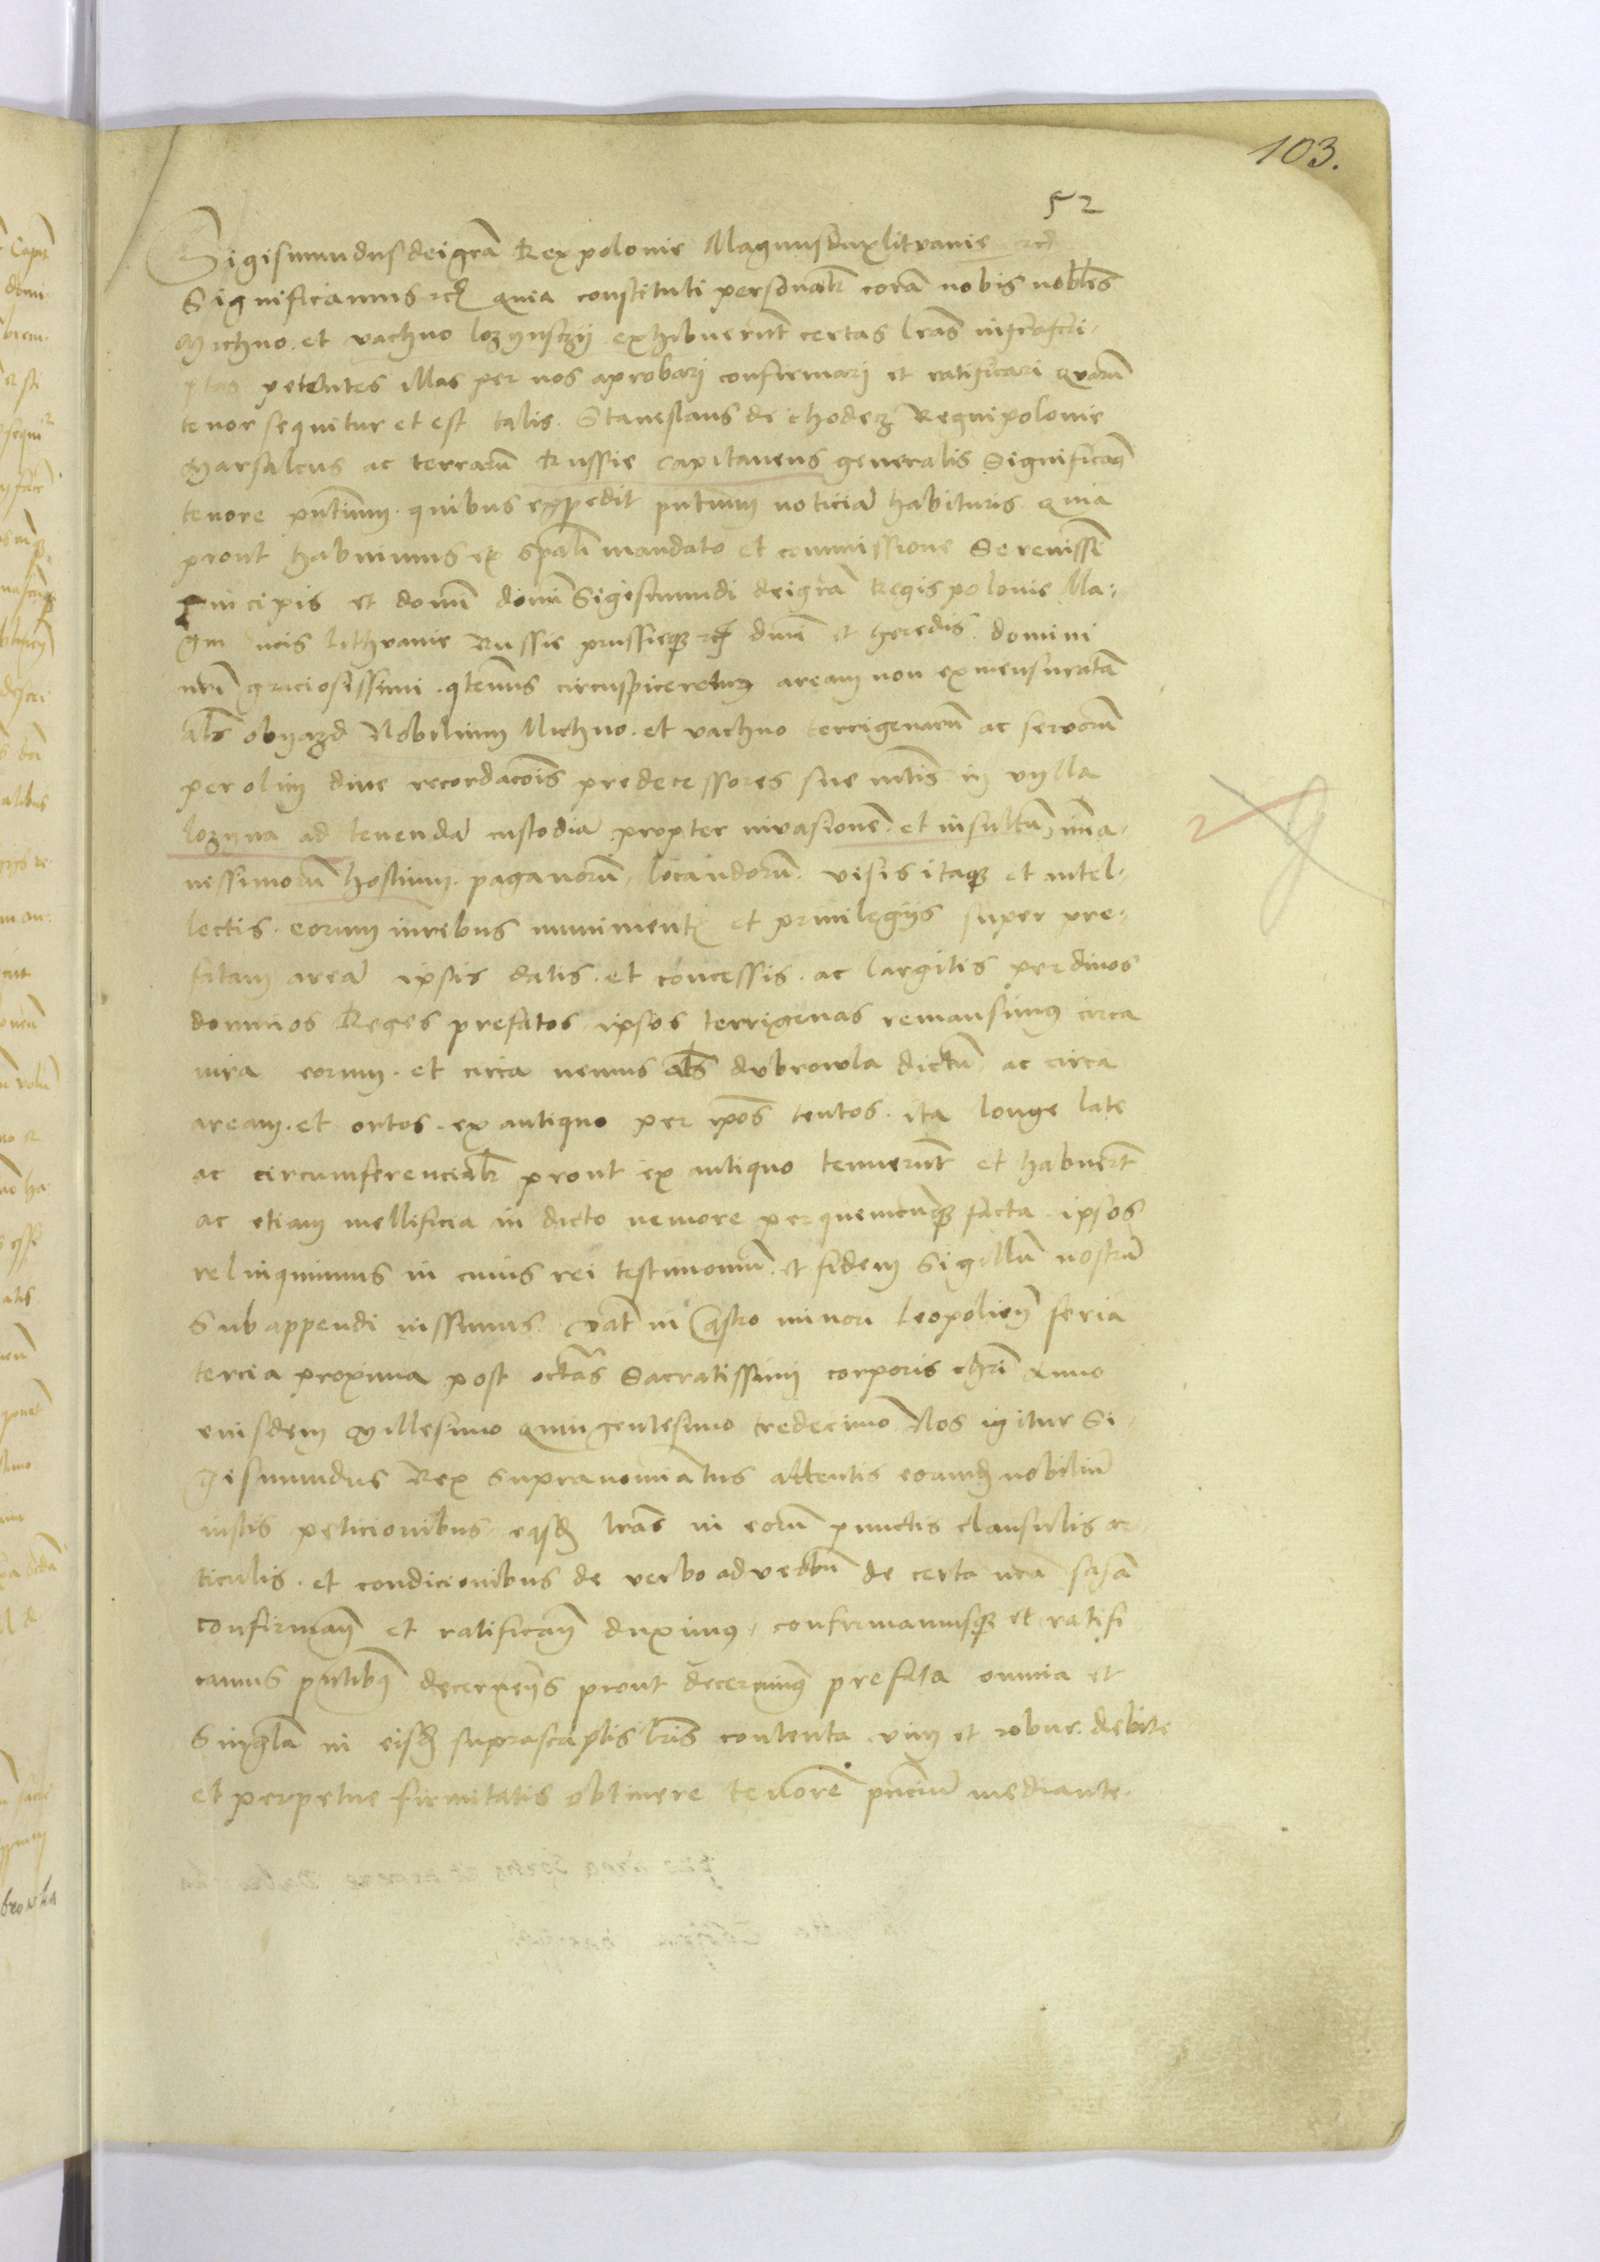 103.
52
Sigismundus dei gra͞ Rex polonie Magnus dux litvanie
Significamus quia constituti personalr coram nobis nobiles
Michno et vachno lozynsczy exhibuerunt certas lras infrascri-
ptas petentes illas per nos aprobari confirmari et ratificari quarum
tenor sequitur et est talis. Staneslaus de chodecz Regni polonie
Marsalcus ac terrarum Russie capitaneus generalis Significam
tenore pntium quibus expedit pntium noticiam habituris quia
prout habuimus ex spali mandato et commissione Serenissi
principis et domini domini Sigismundi dei gra Regis polonie Ma-
gni ducis lithvanie Russie prussieque dni et heredis domini
nri graciosissimi qtenus circumspiceremus aream non exmensuratam
als obyazd Nobilium Michno et vachno terrigenarum ac servorum
per olim dive recordacois predecessores sue mtis in vylla
lozyna ad tenendam custodiam propter invasionem et insultum imma-
nessimorum hostium paganorum locandorum visis itaque et intel-
lectis eorum iuribus munimentis et privilegiis super pre-
fatam aream ipsis datis et concessis ac largitis per divos
dominos Reges prefatos ipsos terrigenas remansimus circa
iura eorum et circa nemus als dubrowla dictum ac circa
aream et ortos ex antiquo per ipos tentos ita longe late
ac circumferencialr prout ex antiquo tenuerunt et habuerunt
ac etiam mellificia in dicto nemore per quemcunque facta ipsos
relinquimus in cuius rei testimonium et fidem Sigillum nostrum
Subappendi iussimus Dat in Castro minori leopolien feria
tercia proxima post octas Sacratissimi corporis chri Anno
eiusdem Millesimo quingentesimo tredecimo Nos igitur Si-
gismundus Rex supranominatus attentis eorum nobilium
iustis peticionibus easdem lras in eorum punctis clausulis ar-
ticulis et condicionibus de verbo ad verbum de certa nra scia
confirmand et ratificand duximus confirmamusque et ratifi
camus pntibus decernens prout decernimus prefata omnia et
Singula in eisdem suprascriptis lris contenta vim et robur debite
et perpetue firmitatis obtinere tenore pncium mediante.